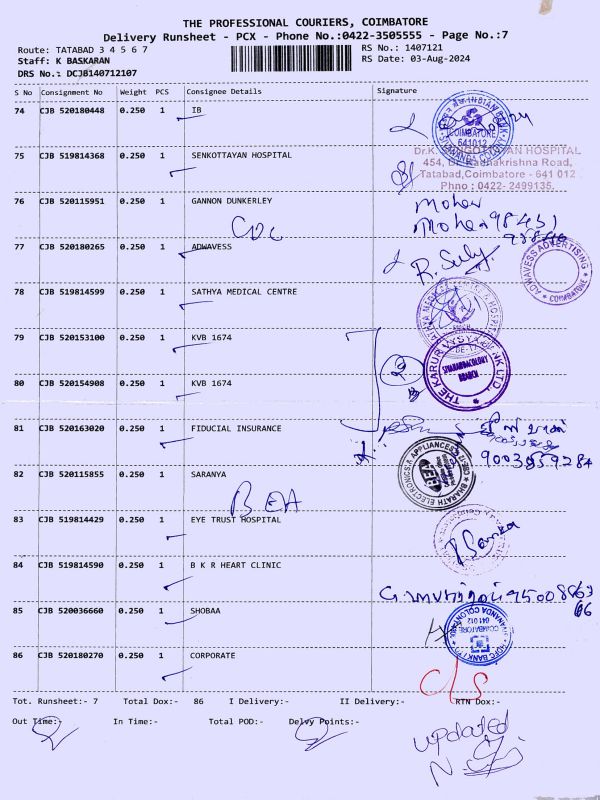 THE PROFESSIONAL COURIERS, COIMBATORE
Delivery Runsheet - PCX - Phone No.:0422-3505555 - Page No.:7
Route: TATABAD 3 4 5 6 7
RS No.: 1407121
Staff: K BASKARAN
RS Date: 03-Aug-2024
DRS No.: DCJB140712107
S No Consignment No Weight PCS Consignee Details Signature
74 CJB 520180448 0.250 1 IB
INDIAN BANK
COIMBATORE
641012
75 CJB 519814368 0.250 1 SENKOTTAYAN HOSPITAL
Dr.K. SENGOTTAYAN HOSPITAL
454, Dr. Radhakrishna Road,
Tatabad, Coimbatore - 641 012
Phno : 0422- 2499135.
76 CJB 520115951 0.250 1 GANNON DUNKERLEY
Mohan
77 CJB 520180265 0.250 1 ADWAVESS
ADWAVESS ADVERTISING
COIMBATORE
78 CJB 519814599 0.250 1 SATHYA MEDICAL CENTRE
79 CJB 520153100 0.250 1 KVB 1674
THE KARUR VYSYA BANK LTD.
SIVANANDACOLONY
BRANCH
80 CJB 520154908 0.250 1 KVB 1674
2
81 CJB 520163020 0.250 1 FIDUCIAL INSURANCE
9003859284
82 CJB 520115855 0.250 1 SARANYA
BHARATH ELECTRONICS & APPLIANCES
BEA
83 CJB 519814429 0.250 1 EYE TRUST HOSPITAL
84 CJB 519814590 0.250 1 B K R HEART CLINIC
85 CJB 520036660 0.250 1 SHOBAA
HDFC BANK
COIMBATORE
641 012
86 CJB 520180270 0.250 1 CORPORATE
Tot. Runsheet:- 7 Total Dox:- 86 I Delivery:- II Delivery:- RTN Dox:-
Out Time:- In Time:- Total POD:- Delvy Points:-
updated